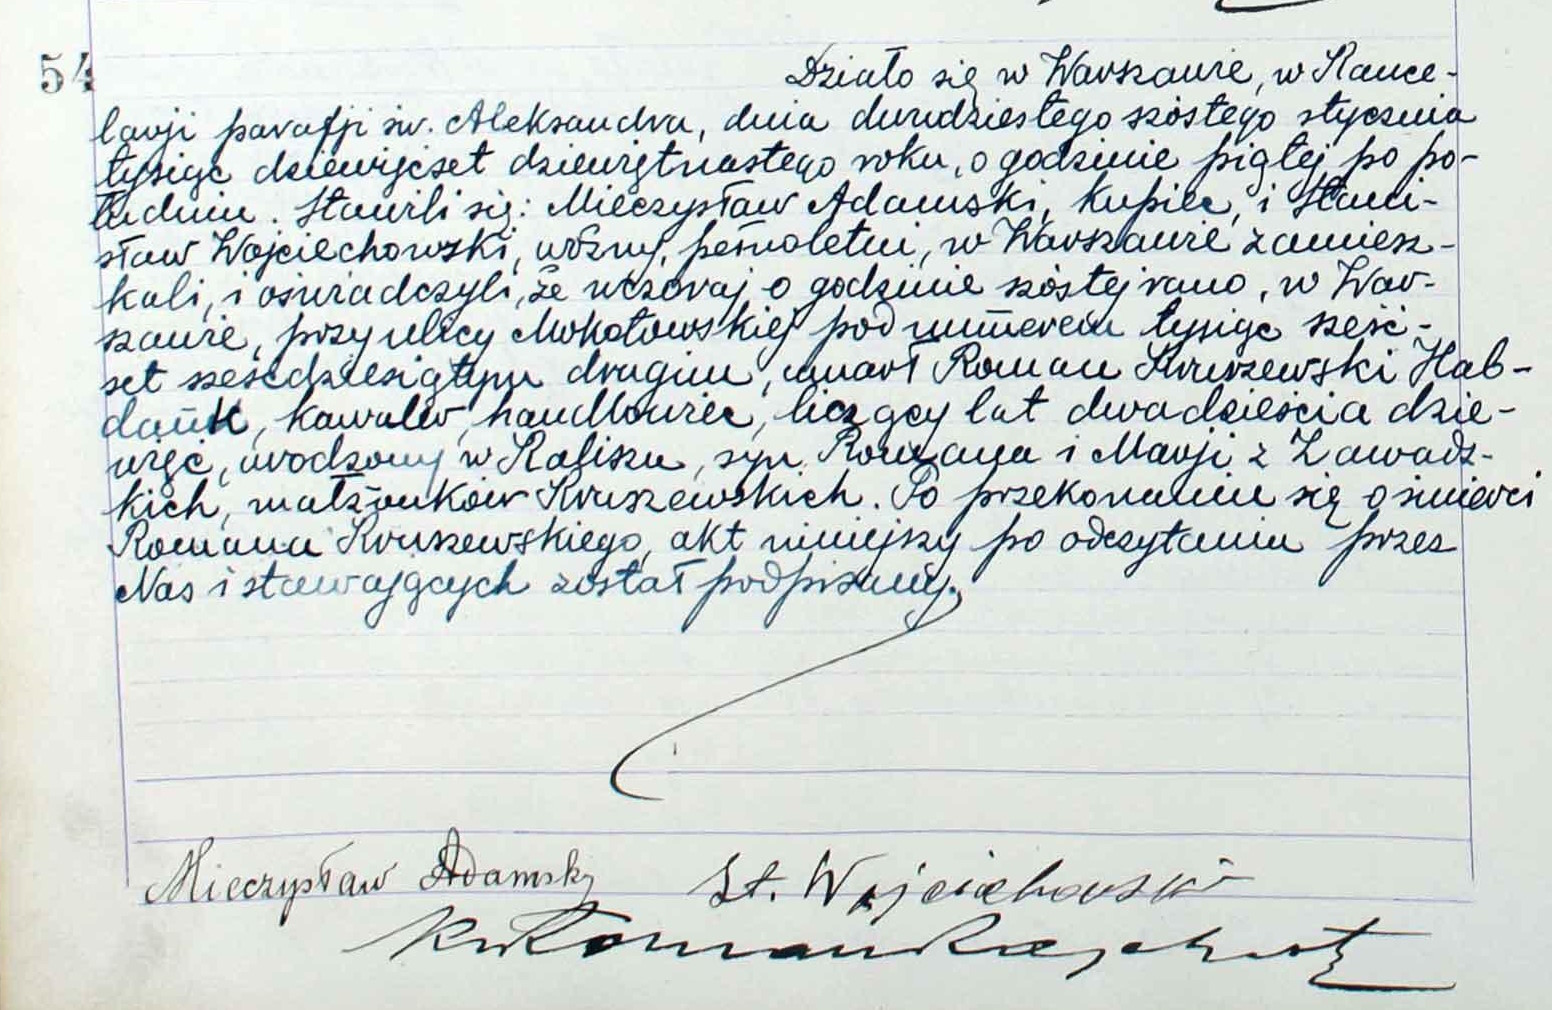 54
Działo się w Warszawie, w Kance-
larji parafji św. Aleksandra, dnia dwudziestego szóstego stycznia
tysiąc dziewięćset dziewiętnastego roku, o godzinie piątej po po-
łudniu. Stawili się: Mieczysław Adamski, kupiec, i Stani-
sław Wojciechowski, woźny, pełnoletni, w Warszawie zamiesz-
kali, i oświadczyli, że wczoraj o godzinie szóstej rano, w War-
szawie, przy ulicy Mokotowskiej pod numerem tysiąc sześć-
set sześćdziesiątym drugim, umarł Roman Kruszewski Hab-
dank, kawaler, handlowiec, liczący lat dwadzieścia dzie-
więć, urodzony w Kaliszu, syn Romana i Marji z Zawadz-
kich, małżonków Kruszewskich. Po przekonaniu się o śmierci
Romana Kruszewskiego, akt niniejszy po odczytaniu przez
Nas i stawających został podpisany.
Mieczysław Adamski St. Wojciechowski